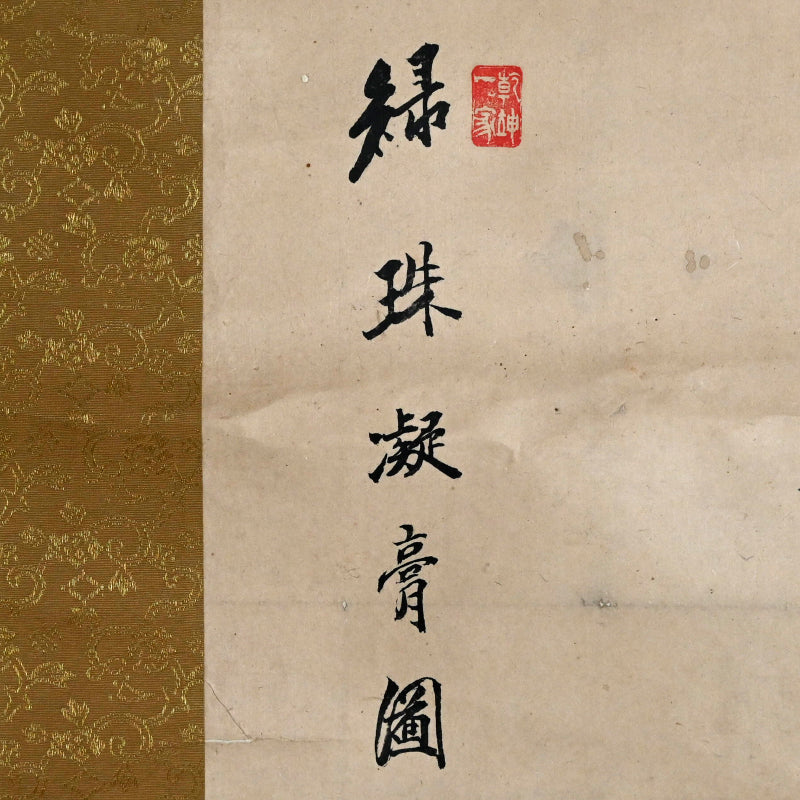 乾坤一家
綠珠凝膏圖